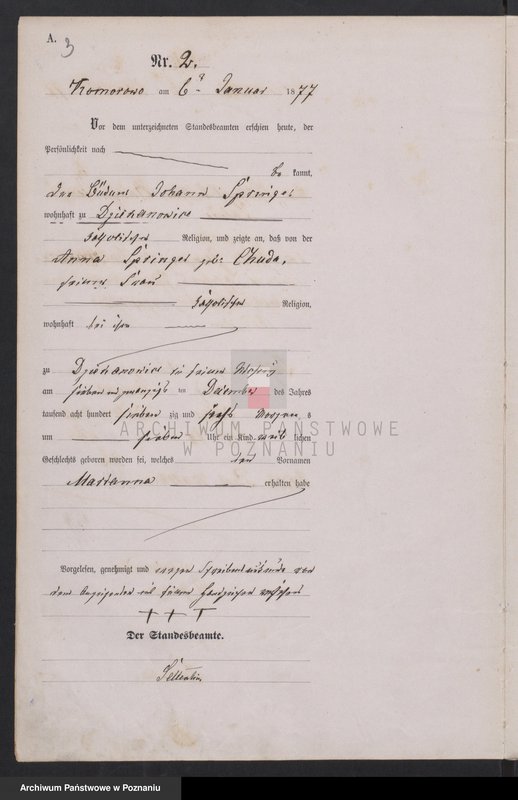 A. 3
Nr. 2.
Komorowo am 6 Januar 1877
Vor dem unterzeichneten Standesbeamten erschien heute, der
Persönlichkeit nach
be kannt,
der Johann Springer
wohnhaft zu
katholischer Religion, und zeigte an, daß von der
Anna Springer geb. Chuda,
seiner Frau
katholischer Religion,
wohnhaft bei ihm
zu in seiner Wohnung
am sieben und zwanzigsten Dezember des Jahres
tausend acht hundert sieben zig und sechs Morgens
um sieben Uhr ein Kind weib lichen
Geschlechts geboren worden sei, welches den Vornamen
Marianna erhalten habe
Vorgelesen, genehmigt und wegen von
dem Anzeigenden mit seinem Handzeichen versehen
+ + +
Der Standesbeamte.
ARCHIWUM PAŃSTWOWE
W POZNANIU
Archiwum Państwowe w Poznaniu